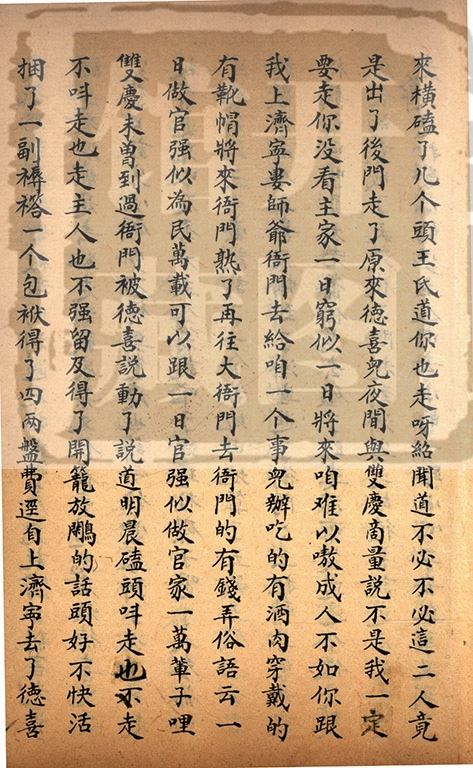 來橫磕了几个頭王氏道你也走呀紹聞道不必不必這二人竟
是出了後門走了原來德喜兒夜間與雙慶商量說不是我一定
要走你没看主家一日窮似一日將來咱难以嗷成人不如你跟
我上濟寧婁師爺衙門去給咱一个事兒辦吃的有酒肉穿戴的
有靴帽將來衙門熟了再往大衙門去衙門的有錢弄俗語云一
日做官强似為民萬載可以跟一日官强似做官家一萬輩子哩
雙慶未曾到過衙門被德喜説動了說道明晨磕頭呌走也不走
不呌走也走主人也不强留及得了開籠放鵰的話頭好不快活
捆了一副褥褡一个包袱得了四两盤費逕自上濟寧去了德喜